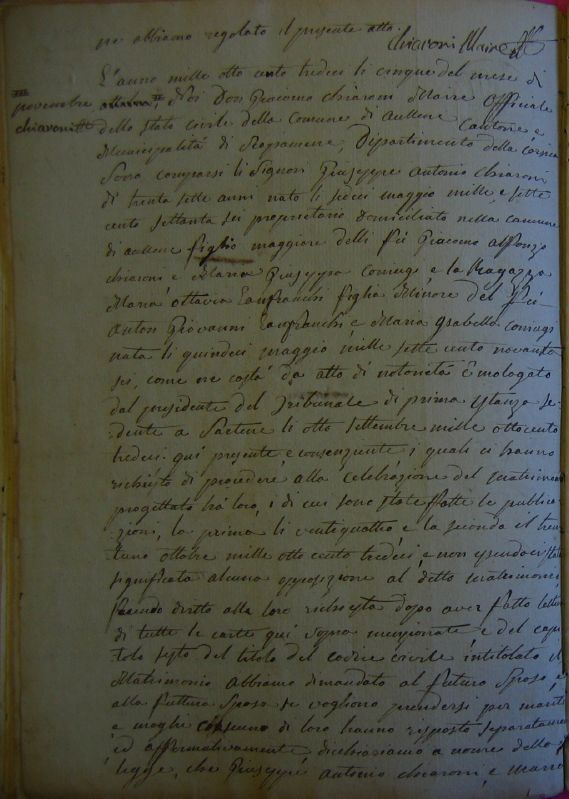 ne abbiamo regolato il presente atto.
Chiaroni Maire
L'anno mille otto cento tredeci li cinque del mese di
novembre
chiaroni
Noi Don Giacomo Chiaroni Maire Officiale
dello stato civile della Comune di aullene Cantone e
Municipalità di Dipartimento della corsica
Sono comparsi li Signori Giuseppe Antonio chiaroni
di trenta sette anni nato li maggio mille, e sette
cento settanta sei proprietario domiciliato nella comune
di aullene figlio maggiore delli fú Giacomo alfonzo
chiaroni e Maria Giuseppa coniugi e la Ragazza
Maria ottavia Lanfranchi figlia Minore del fú
Anton Giovanni Lanfranchi, e Maria ysabella coniugi
nata li quindeci maggio mille sette cento novanta
sei, come ore costa da atto di notorietà e' mologato
dal presidente del Tribunale di prima ystanza se-
dente a Sartene li otto settembre mille ottocento
tredeci qui presente, e consenziente, i quali ci hanno
richiesto di procedere alla celebrazione del matrimonio
progettato frà loro, i di cui sono state fatte le publica-
zioni, la prima li ventiquattro e la seconda il tren-
tuno ottobre mille otto cento tredeci, e non
significata alcuna opposizione al detto matrimonio
facendo dritto alla loro richiesta dopo aver fatto lettura
di tutte le carte qui sopra menzionate e del capi-
tolo sesto del titolo del codice civile intitolato il
Matrimonio abbiamo dimandato al futuro sposo, e
alla futtura sposa se vogliono prendersi per marito
e moglie di loro hanno risposto separatamen
ed affermativamente dichiariamo a nome della
legge, che Giuseppe antonio chiaroni, e Maria